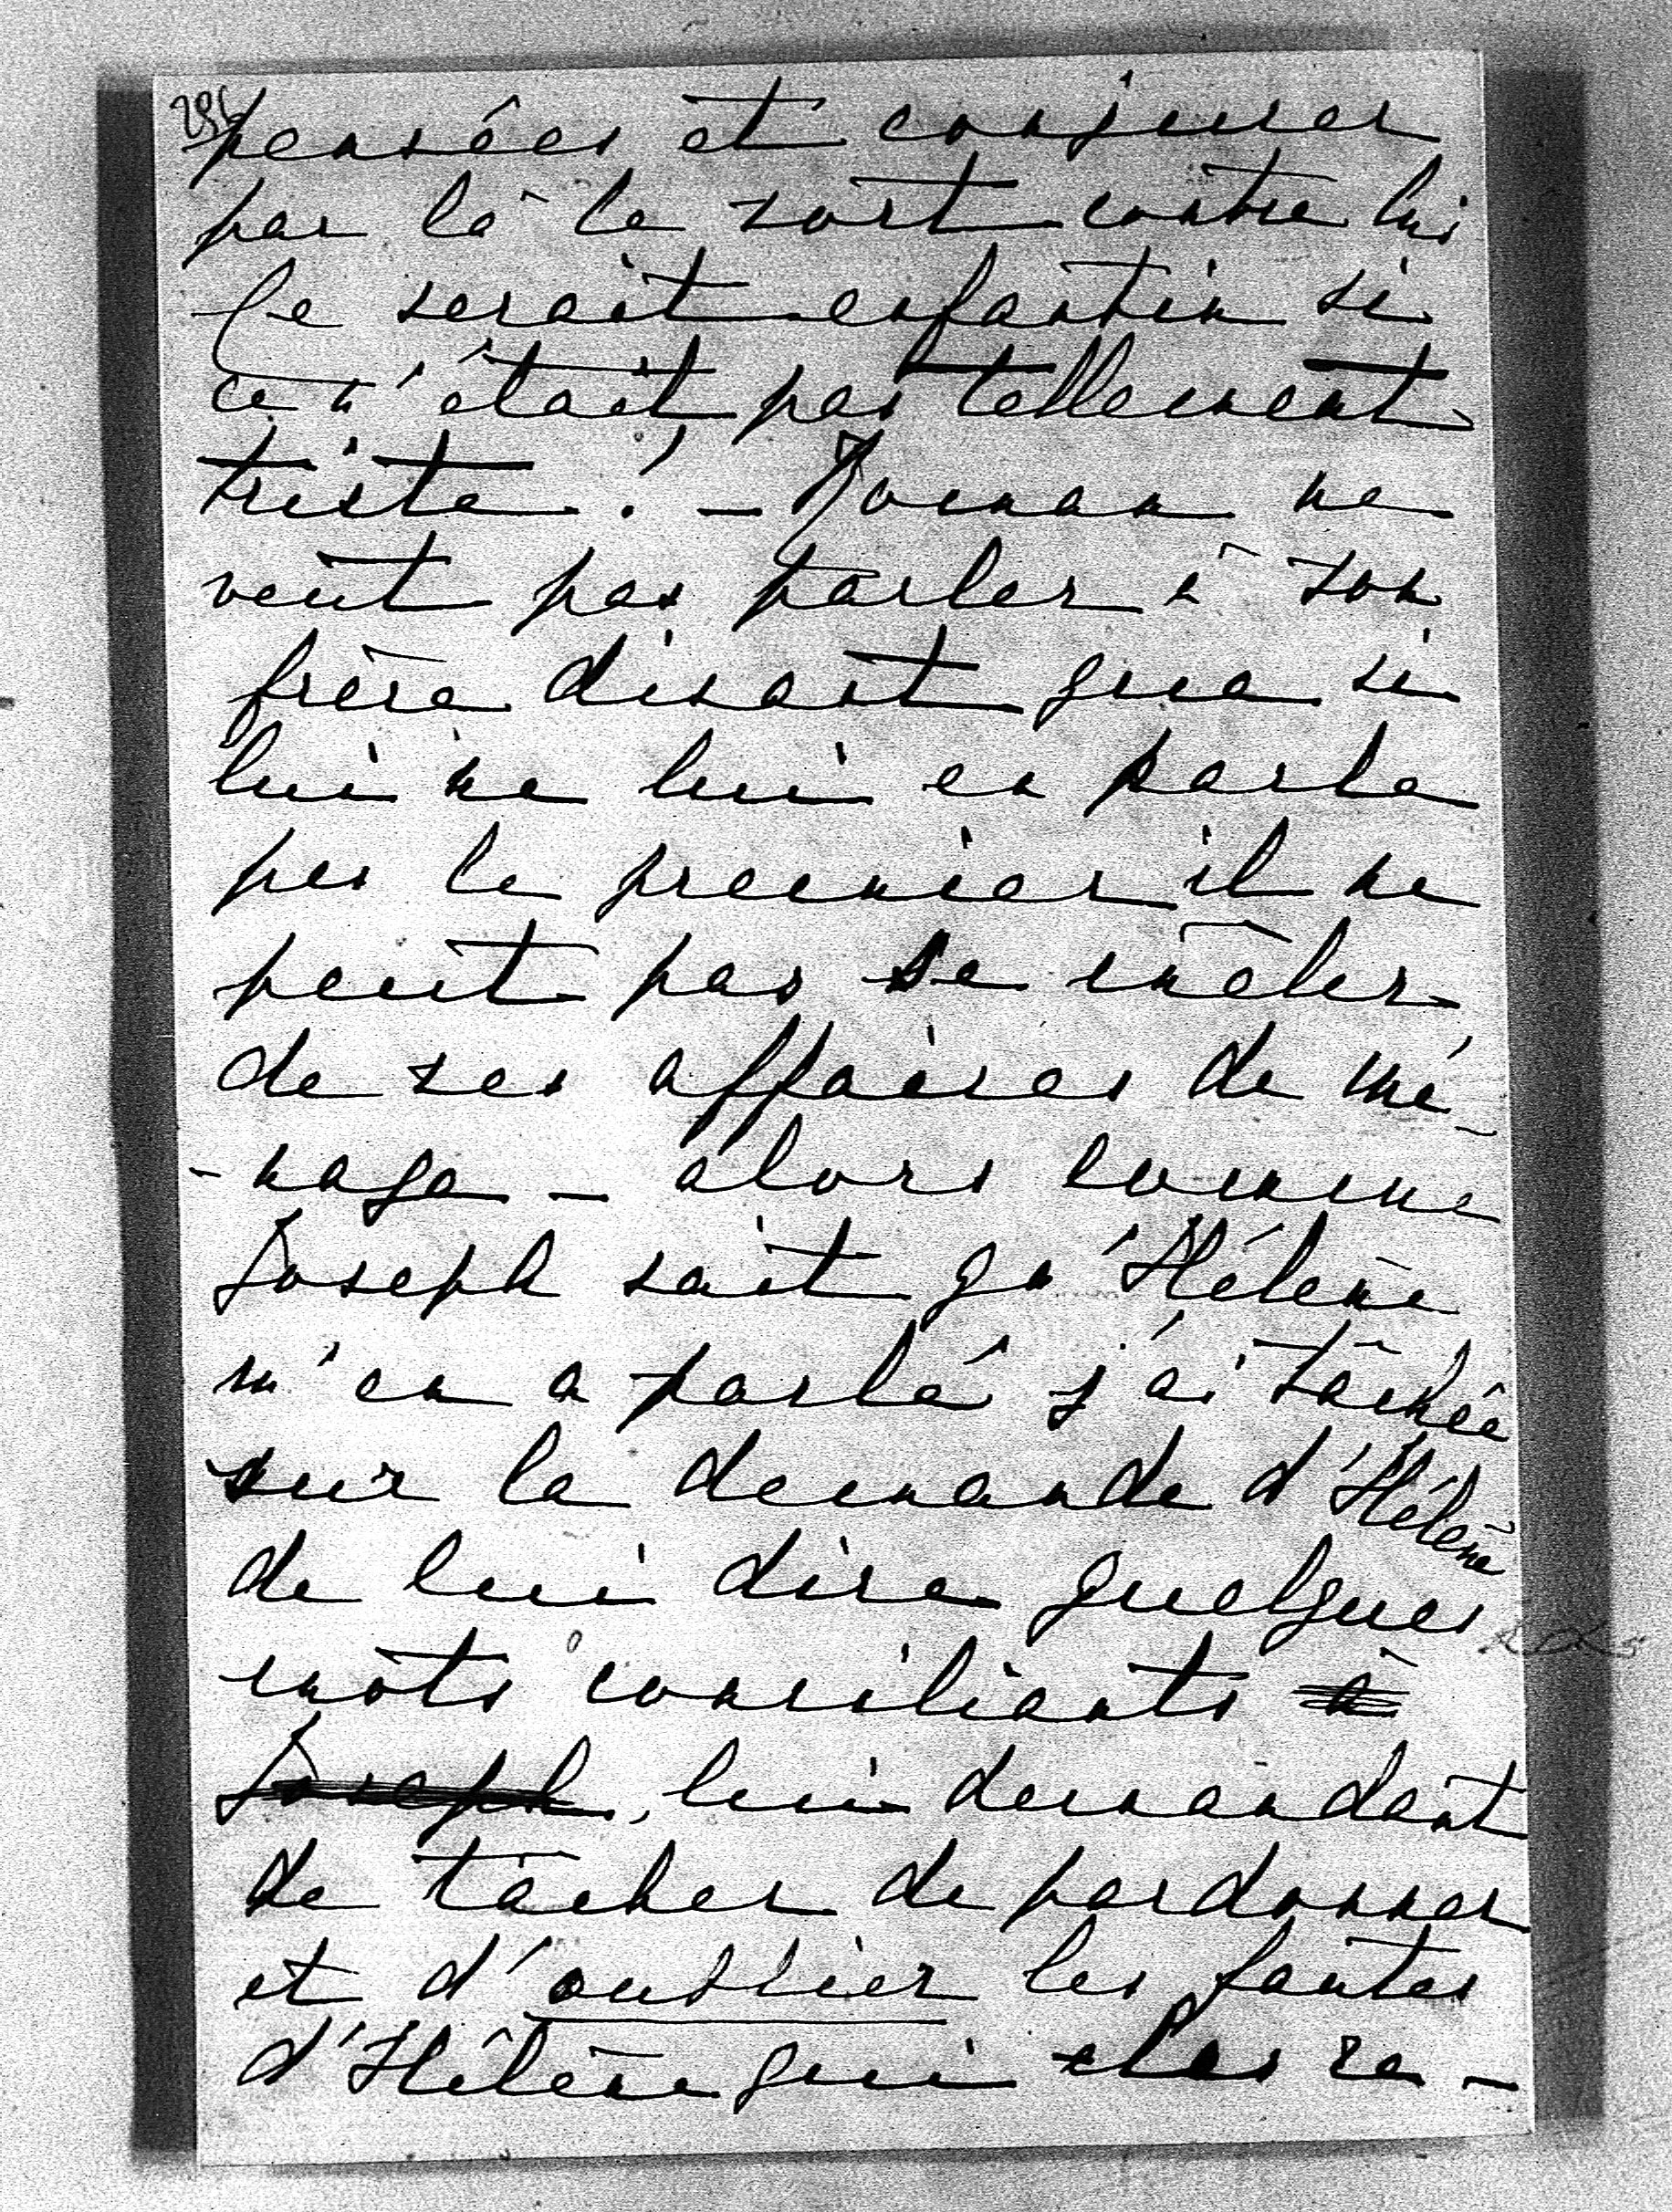 pensées et conjurer
par là le sort contre lui
Ce serait enfantin si
ce n'était pas tellement
triste! – Roman ne
veut pas parler à son
frère disant que si
lui ne lui en parle
pas le premier il ne
peut pas se mêler
de ses affaires de mé-
-nage – alors comme
Joseph sait qu'Hélène
m'en a parlé j'ai tâchée
sur la demande d'Hélène
de lui dire quelques
mots conciliants à
Joseph, lui demandant
de tâcher de pardonner
et d'oublier les fautes
d'Hélène qui les re-